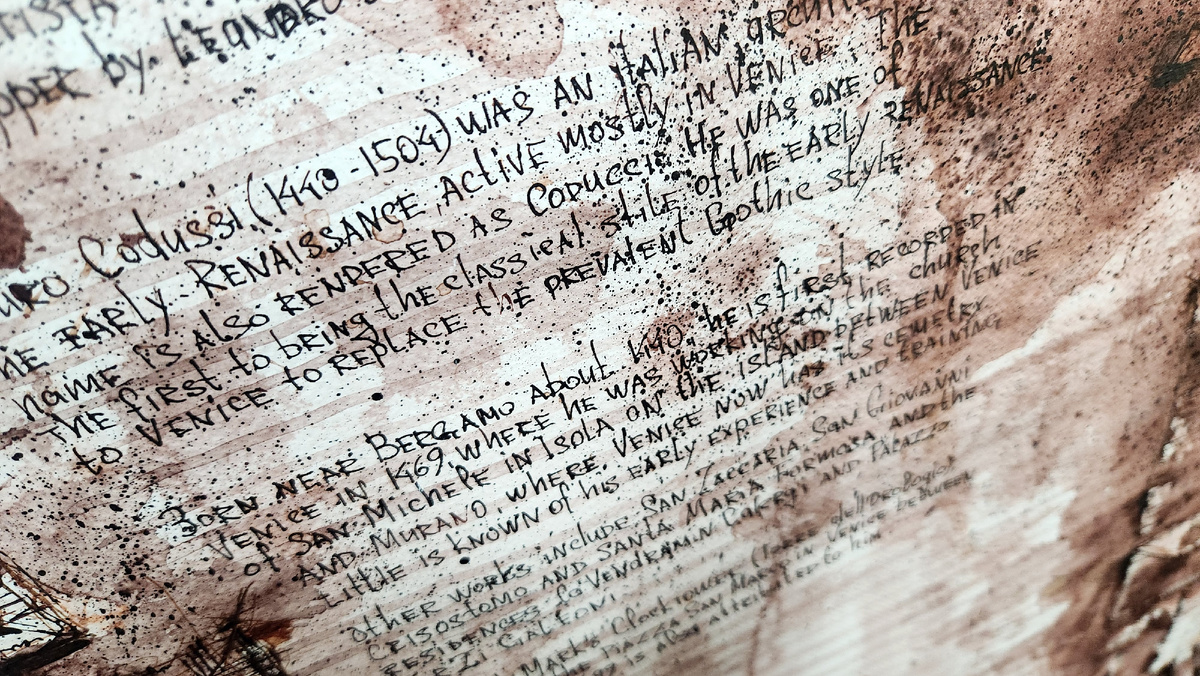 by Leandro
uro Codussi (1440-1504) was an Italian archite
he early Renaissance, active mostly in Venice. The
name is also rendered as Coducci. He was one of
the first to bring the classical stile of the early Renaissance
to Venice to replace the prevalent Gothic style
Born near Bergamo about 1440, he is first recorded in
Venice in 1469, where he was working on the church
of San Michele in Isola on the island between Venice
and Murano, where Venice now has its cemetry
Little is known of his early experience and training
Other works include San Zaccaria, San Giovanni
Crisostomo and Santa Maria Formosa and the
residences Ca Vendramin Calergi and Palazzo
Mark's Clocktower (Torre dell'Orologio)
Piazza San Marco in Venice between
is also attributed to him